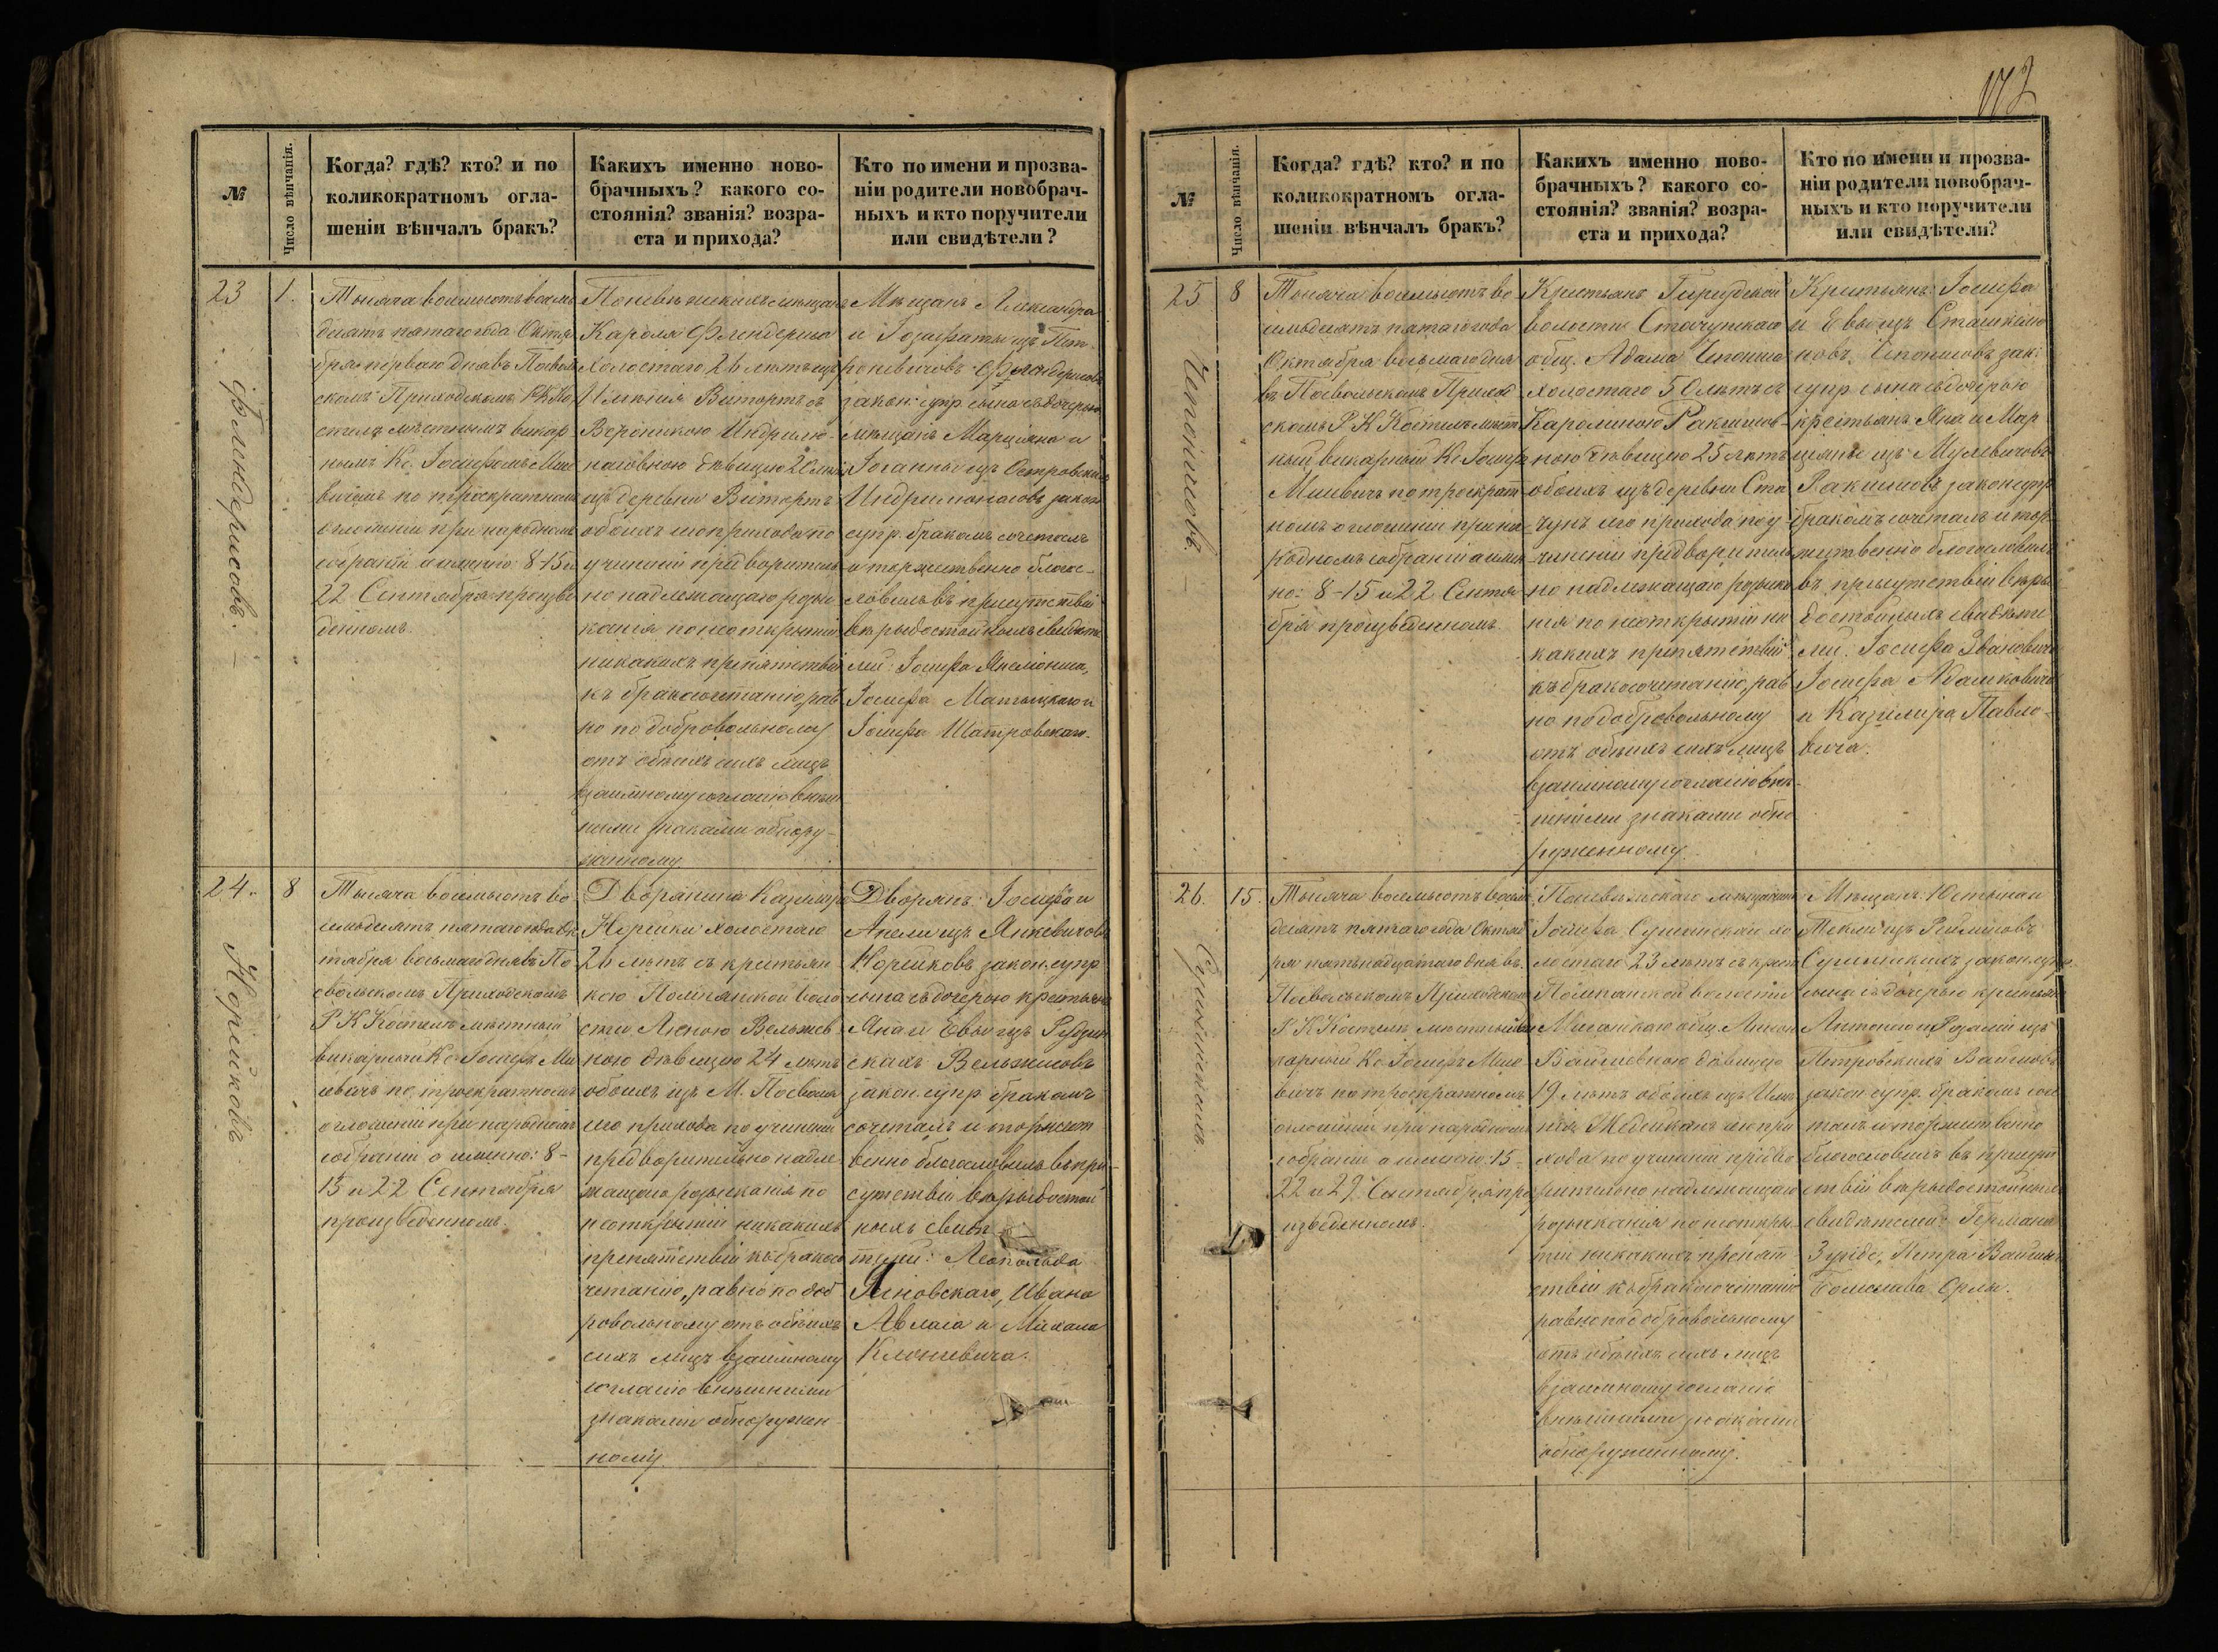 №
Число вѣнчанія.
Когда? гдѣ? кто? и по
коликократномъ огла-
шеніи вѣнчалъ бракъ?
Какихъ именно ново-
брачныхъ? какого со-
стоянія? званія? возра-
ста и прихода?
Кто по имени и прозва-
ніи родители новобрач-
ныхъ и кто поручители
или свидѣтели?
23
1.
Тысяча восемьсотъ восемь
десятъ пятаго года Октя
бря перваго дня въ Посволь
скомъ Приходскомъ Р К Ко
стелѣ мѣстнымъ викар
нымъ Кс. Іосифомъ Миле
вичемъ по троекратномъ
оглашеніи при народномъ
собраніи а именно: 8-15 и
22 Сентября произве
денномъ.
Поневѣжскихъ мѣщанъ
Кароля Флендериса
холостаго 26 лѣтъ изъ
Имѣнія Витортъ съ
Вероникою Индрилю-
наговною дѣвицею 20 лѣтъ
изъ деревни Витортъ
обоихъ его прихода по
учиненіи предваритель
но надлежащаго розы
канія по неоткрытіи
никакихъ препятствій
къ бракосочетанію, рав
но по добровольному
отъ обѣихъ сихъ лицъ
взаимному согласію внѣш
ними знаками обнару-
женному
Мѣщанъ Александра
и Іозефаты изъ Пет-
роневичовъ Флендерисовъ
закон: супр. сына съ дочерью
мѣщанъ Марціяна и
Іоганны изъ Островскихъ
закон
супр. бракомъ сочеталъ
и торжественно благо-
словилъ въ присутствіи
вѣрыдостойныхъ свидѣте
лей: Іосифа
Іосифа Матыцкаго и
Іосифа Шатровскаго.
Флендерисовъ. —
24.
8
Тысяча восемьсотъ во
семьдесятъ пятаго года Ок
тября восьмаго дня въ По
свольскомъ Приходскомъ
Р К Костелѣ мѣстный
викарный Кс. Іосифъ Ми
левичъ по троекратномъ
оглашеніи при народномъ
собраніи а именно: 8-
15 и 22 Сентября
произведенномъ.
Дворянина Казимира
Норейки холостаго
26 лѣтъ съ крестьян
кою Помпянской воло
сти Анною Вельжев
ною дѣвицею 24 лѣтъ
обоихъ изъ М. Посволя
его прихода по учиненіи
предварительно надле
жащаго розысканія по
неоткрытіи никакихъ
препятствій къ бракосо
четанію, равно по доб
ровольному отъ обѣихъ
сихъ лицъ взаимному
согласію внѣшними
знаками обнаружен
ному.
Дворянъ: Іосифа и
Анели изъ Янкевичовъ
Норейковъ закон. супр
сына съ дочерью крестьянъ
Яна и Евы изъ Рудзин
скихъ Вельжисовъ
закон. супр. бракомъ
сочеталъ и торжест
венно благословилъ въ при-
сутствіи вѣрыдостой
ныхъ свидѣ
телей: Леопольда
Яновскаго, Ивана
Авласа и Михаила
Клоневича.
Норейковъ
112
№
Число вѣнчанія.
Когда? гдѣ? кто? и по
коликократномъ огла-
шеніи вѣнчалъ бракъ?
Какихъ именно ново-
брачныхъ? какого со-
стоянія? званія? возра-
ста и прихода?
Кто по имени и прозва-
ніи родители новобрач-
ныхъ и кто поручители
или свидѣтели?
25
8
Тысяча восемьсотъ во
семьдесятъ пятаго года
Октября восьмаго дня
въ Посвольскомъ Приход
скомъ Р К Костелѣ мѣст
ный викарный Кс Іосифъ
Милевичъ по троекрат
номъ оглашеніи при на
родномъ собраніи а имен
но: 8-15 и 22 Сентя
бря произведенномъ.
Крестьянъ Гируdской
волости Стачунскаго
общ. Адама Чепониса
холостаго 50 лѣтъ съ
Каролиною Ракшнов-
ною дѣвицею 25 лѣтъ
обоихъ изъ деревни Ста
чунъ его прихода по у
чиненіи предваритель
но надлежащаго розыска
нія по неоткрытіи ни
какихъ препятствій
къ бракосочетанію, рав
но по добровольному
отъ обѣихъ сихъ лицъ
взаимному согласію внѣ-
шними знаками обна
руженному
Крестьянъ: Іосифа
и Евы изъ Сташкюно
новъ. Чепонисовъ зак:
супр. сына съ дочерью
крестьянъ Яна и Мар
ціяны изъ Мулевичовъ
Ракшисовъ закон супр
бракомъ сочеталъ и тор-
жественно благословилъ
въ присутствіи вѣры
достойныхъ свидѣте
лей. Іосифа Ивановича
Іосифа Адамковича
и Казимира Павло-
вича.
Чепонисовъ. —
26.
15.
Тысяча восемьсотъ восемь
десятъ пятаго года Октяб
ря пятьнадцатаго дня въ
Посвольскомъ Приходскомъ
Р К Костелѣ мѣстный ви
карный Кс Іосифъ Миле
вичъ по троекратномъ
оглашеніи при народномъ
собраніи а именно: 15-
22 и 29 Сентября про
изведенномъ.
Поневѣжскаго мѣщанина
Іосифа Сушинскаго хо
лостаго 23 лѣтъ съ крест
Помпянской волости
общ. Анною
дѣвицею
19 лѣтъ обоихъ изъ Имѣ
нія его при
хода по учиненіи предва
рительно надлежащаго
розысканія по неоткры-
тіи никакихъ препят
ствій къ бракосочетанію
равно по добровольному
отъ обѣихъ сихъ лицъ
взаимному согласію
внѣшними знаками
обнаруженному.
Мѣщанъ Юстина и
Теклы изъ
Сушинскихъ закон. супр.
сына съ дочерью крестьянъ
Антонія и Розаліи изъ
Петровскихъ
закон супр. бракомъ соче
талъ и торжественно
благословилъ въ присут
ствіи вѣрыдостойныхъ
свидѣтелей: Германа
Петра
Болеслава Орлы.
Сушинскихъ.